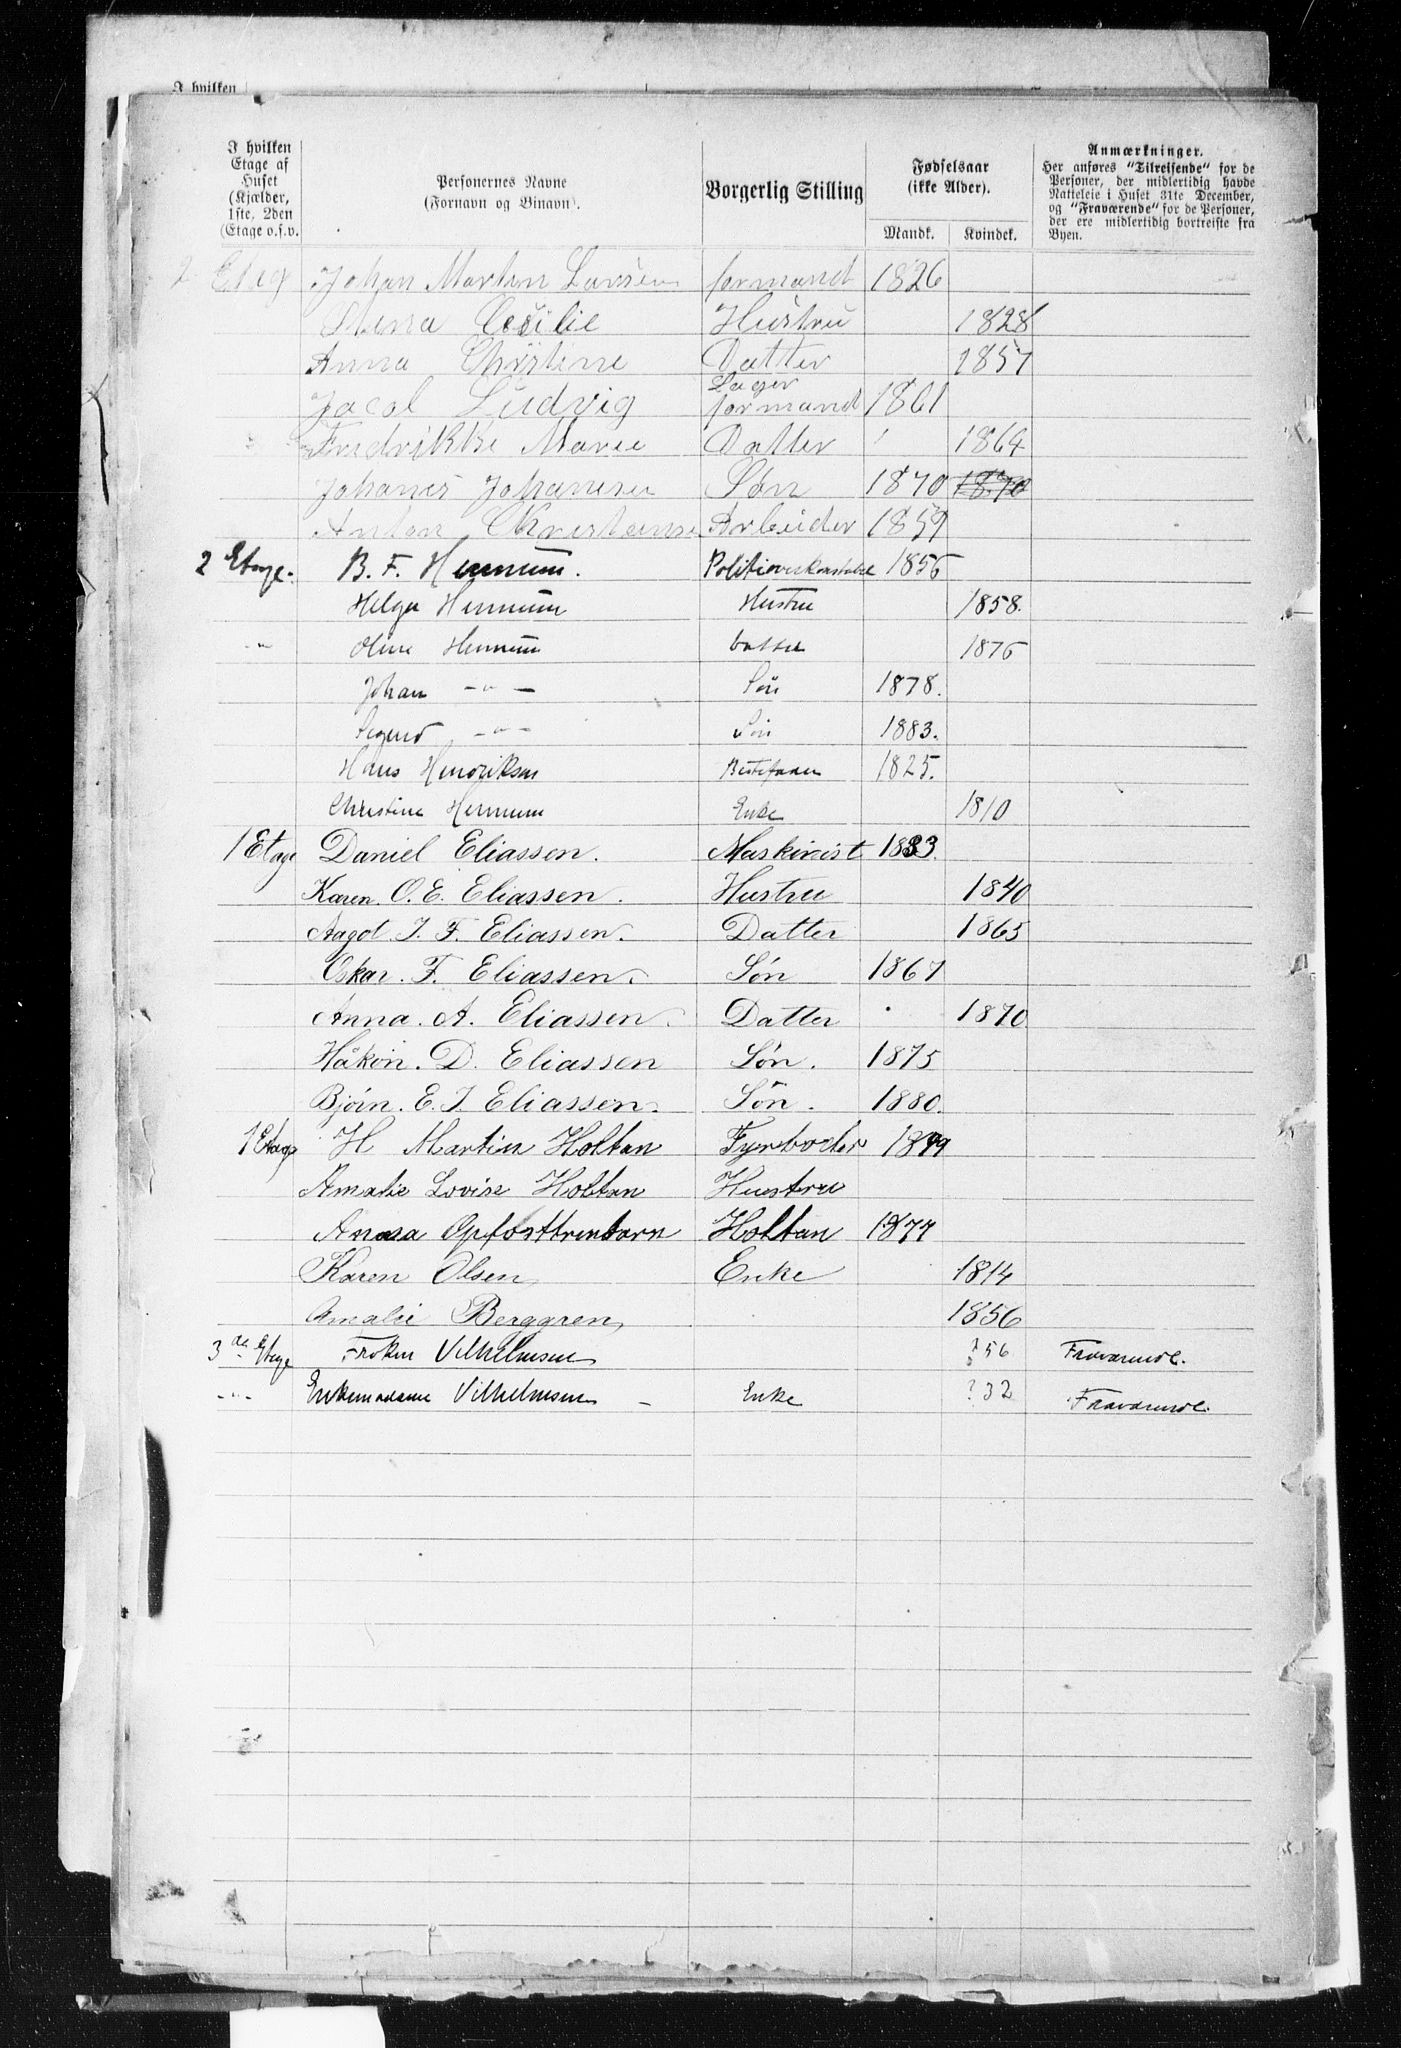 I hvilken
I hvilken Etage af Huset (Kjælder, 1ste, 2den Etage o.s.v.
Personernes Navne (Fornavn og Binavn).
Borgerlig Stilling
Fødselsaar (ikke Alder).
Mandk. Kvindek.
Anmærkninger.
Her anføres "Tilreisende" for de Personer, der midlertidig havde Natteleie i Huset 31te December, og "Fraværende" for de Personer, der ere midlertidig bortreiste fra Byen.
2 Etag Johan Martin Larsen formand 1826
Stena Cesilie Hustru 1828
Anna Christine Datter 1857
Jacob Ludvig Lager formand 1861
Fredrikke Marie Datter 1864
Johanes Johanesen Søn 1870 1870
Anton Christense Arbeider 1859
2 Etage. B. F. Hermum. Politioverkonstabel 1856
Helga Hermum Hustru 1858.
-"- Oline Hermum Datter 1876
Johan -"- Søn 1878.
Sigurd -"- Søn 1883.
Hans Hendriksen Bestefader 1825.
Christine Hermum Enke 1810
1 Etage Daniel Eliassen. Maskinist 1833.
Karen. O. E. Eliassen. Hustru 1840
Aagot. J. F. Eliassen. Datter 1865
Oskar. F. Eliassen. Søn 1867
Anna. A. Eliassen. Datter 1870
Håkon. D. Eliassen Søn. 1875
Bjørn. E. J. Eliassen. Søn. 1880.
1 Etage H Martin Holtan Fyrbøder
Amalie Lovise Holtan Hustru
Anna Opfosttrenbarn Holtan 1877
Karen Olsen Enke 1814
Amalie Berggren 1856
3de Etage Frøken Vilhelmsen ? 56 Fraværende.
-"- Enkemadame Vilhelmsen - Enke ? 32 Fraværende.